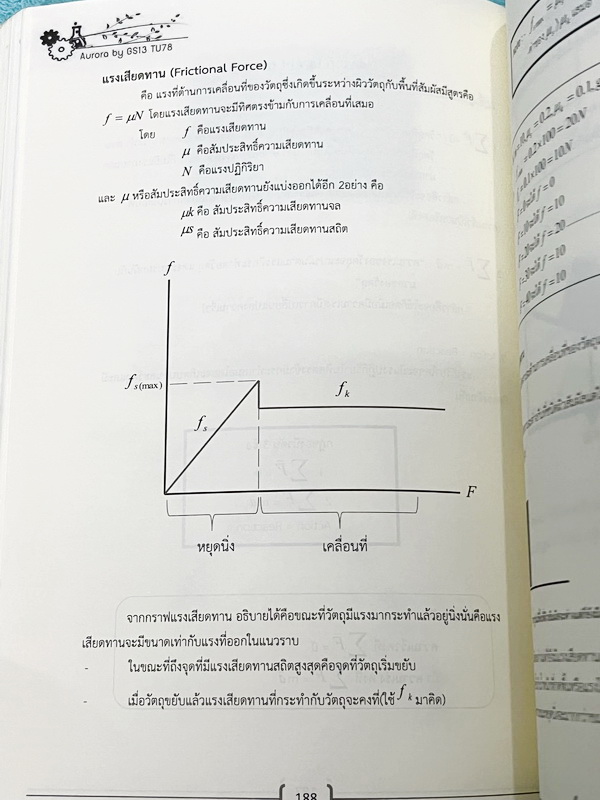 Aurora by GS13 TU78
แรงเสียดทาน (Frictional Force)
คือ แรงที่ต้านการเคลื่อนที่ของวัตถุซึ่งเกิดขึ้นระหว่างผิววัตถุกับพื้นที่สัมผัสมีสูตรคือ
f = μN โดยแรงเสียดทานจะมีทิศตรงข้ามกับการเคลื่อนที่เสมอ
โดย f คือแรงเสียดทาน
μ คือสัมประสิทธิ์ความเสียดทาน
N คือแรงปฏิกิริยา
และ μ หรือสัมประสิทธิ์ความเสียดทานยังแบ่งออกได้อีก 2อย่าง คือ
μk คือ สัมประสิทธิ์ความเสียดทานจล
μs คือ สัมประสิทธิ์ความเสียดทานสถิต
f
f s(max)
f s
f k
F
หยุดนิ่ง
เคลื่อนที่
จากกราฟแรงเสียดทาน อธิบายได้คือขณะที่วัตถุมีแรงมากระทำแล้วอยู่นิ่งนั่นคือแรง
เสียดทานจะมีขนาดเท่ากับแรงที่ออกในแนวราบ
- ในขณะที่ถึงจุดที่มีแรงเสียดทานสถิตสูงสุดคือจุดที่วัตถุเริ่มขยับ
- เมื่อวัตถุขยับแล้วแรงเสียดทานที่กระทำกับวัตถุจะคงที่(ใช้ f k มาคิด)
188